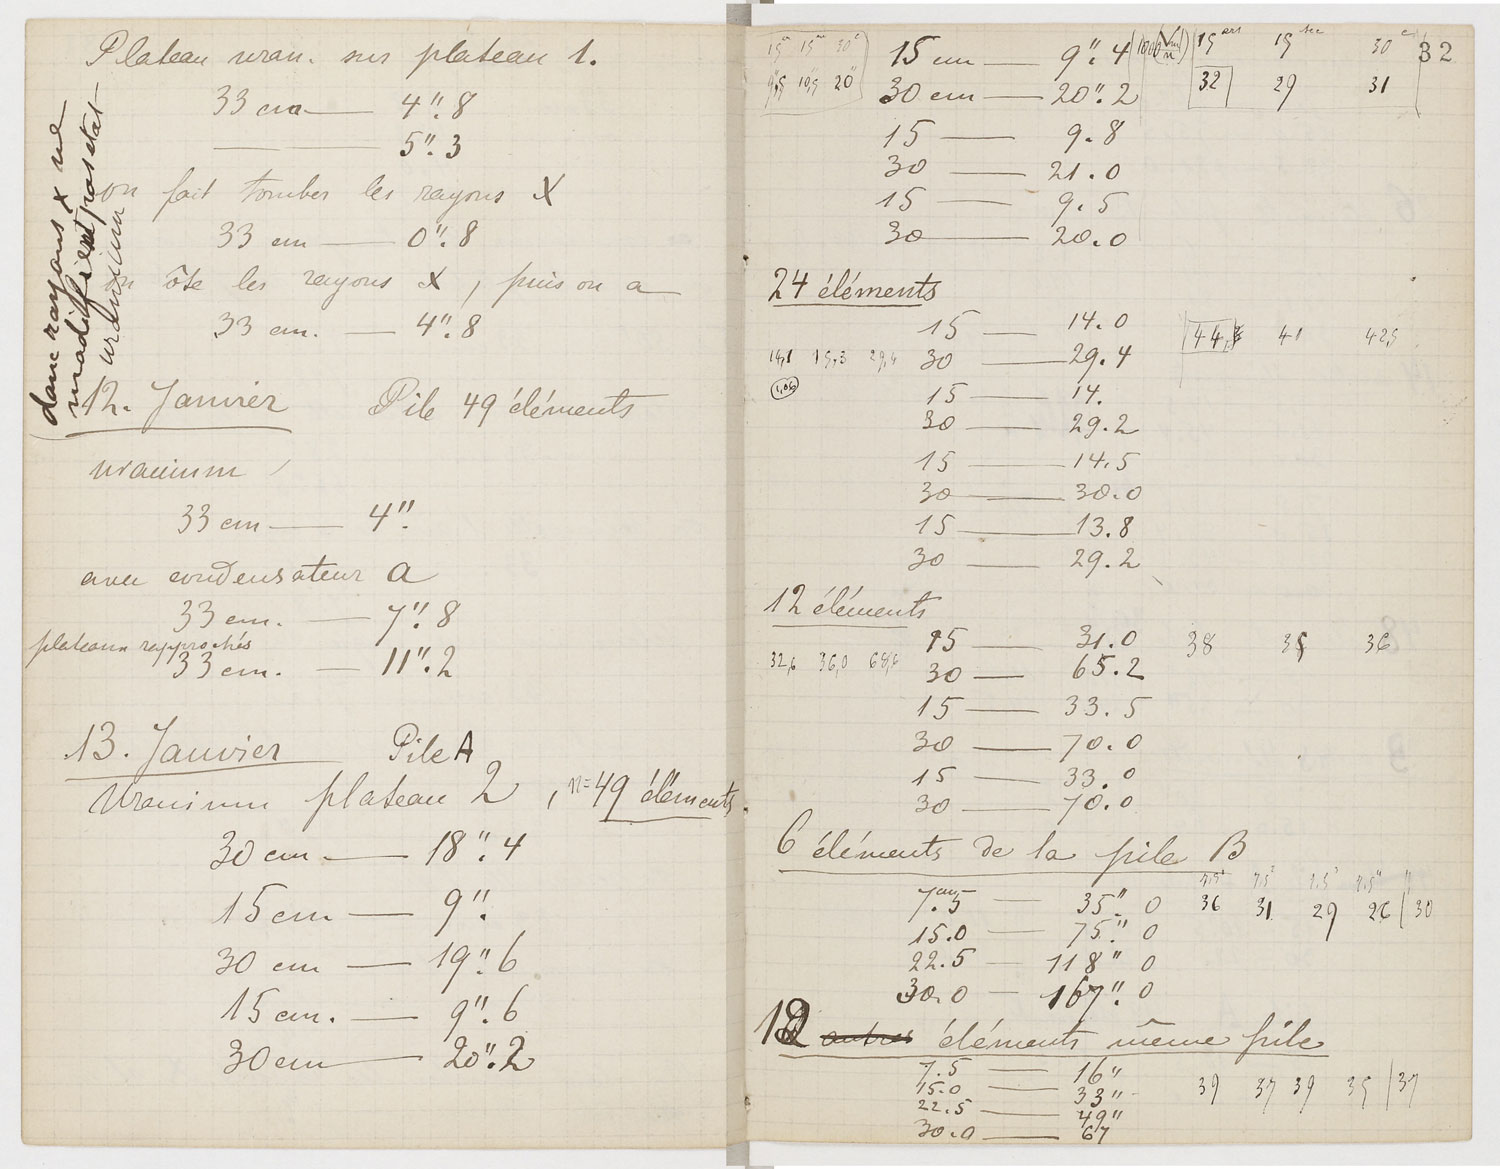 Plateau uran. sur plateau 1.
33 cm — 4".8
— — 5".3
on fait tomber les rayons X
33 cm — 0".8
on ôte les rayons X, puis on a
33 cm. — 4".8
donc rayons X ne
modifient pas état
uranium
12. Janvier Pile 49 éléments
uranium
33 cm — 4".
avec condensateur a
33 cm. — 7".8
plateaux rapprochés
33 cm. — 11".2
13. Janvier Pile A
Uranium plateau 2, n=49 éléments
30 cm — 18".4
15 cm — 9".
30 cm — 19".6
15 cm. — 9".6
30 cm — 20".2
32
15 15 30
15 cm — 9".4
15 15 30
20"
30 cm — 20".2
32 29 31
15 — 9.8
30 — 21.0
15 — 9.5
30 — 20.0
24 éléments
15 — 14.0
44 41 42,5
14,1 15,3 29,4
30 — 29.4
1,06
15 — 14.
30 — 29.2
15 — 14.5
30 — 30.0
15 — 13.8
30 — 29.2
12 éléments
15 — 31.0
38 35 36
32,6 36,0 68,6
30 — 65.2
15 — 33.5
30 — 70.0
15 — 33.0
30 — 70.0
6 éléments de la pile B
7.5 cm — 35".0
36 31 29 26 | 30
15.0 — 75".0
22.5 — 118" 0
30.0 — 167".0
12 autres éléments même pile
7.5 — 16"
15.0 — 33"
39 37 39 35 | 37
22.5 — 49"
30.0 — 67